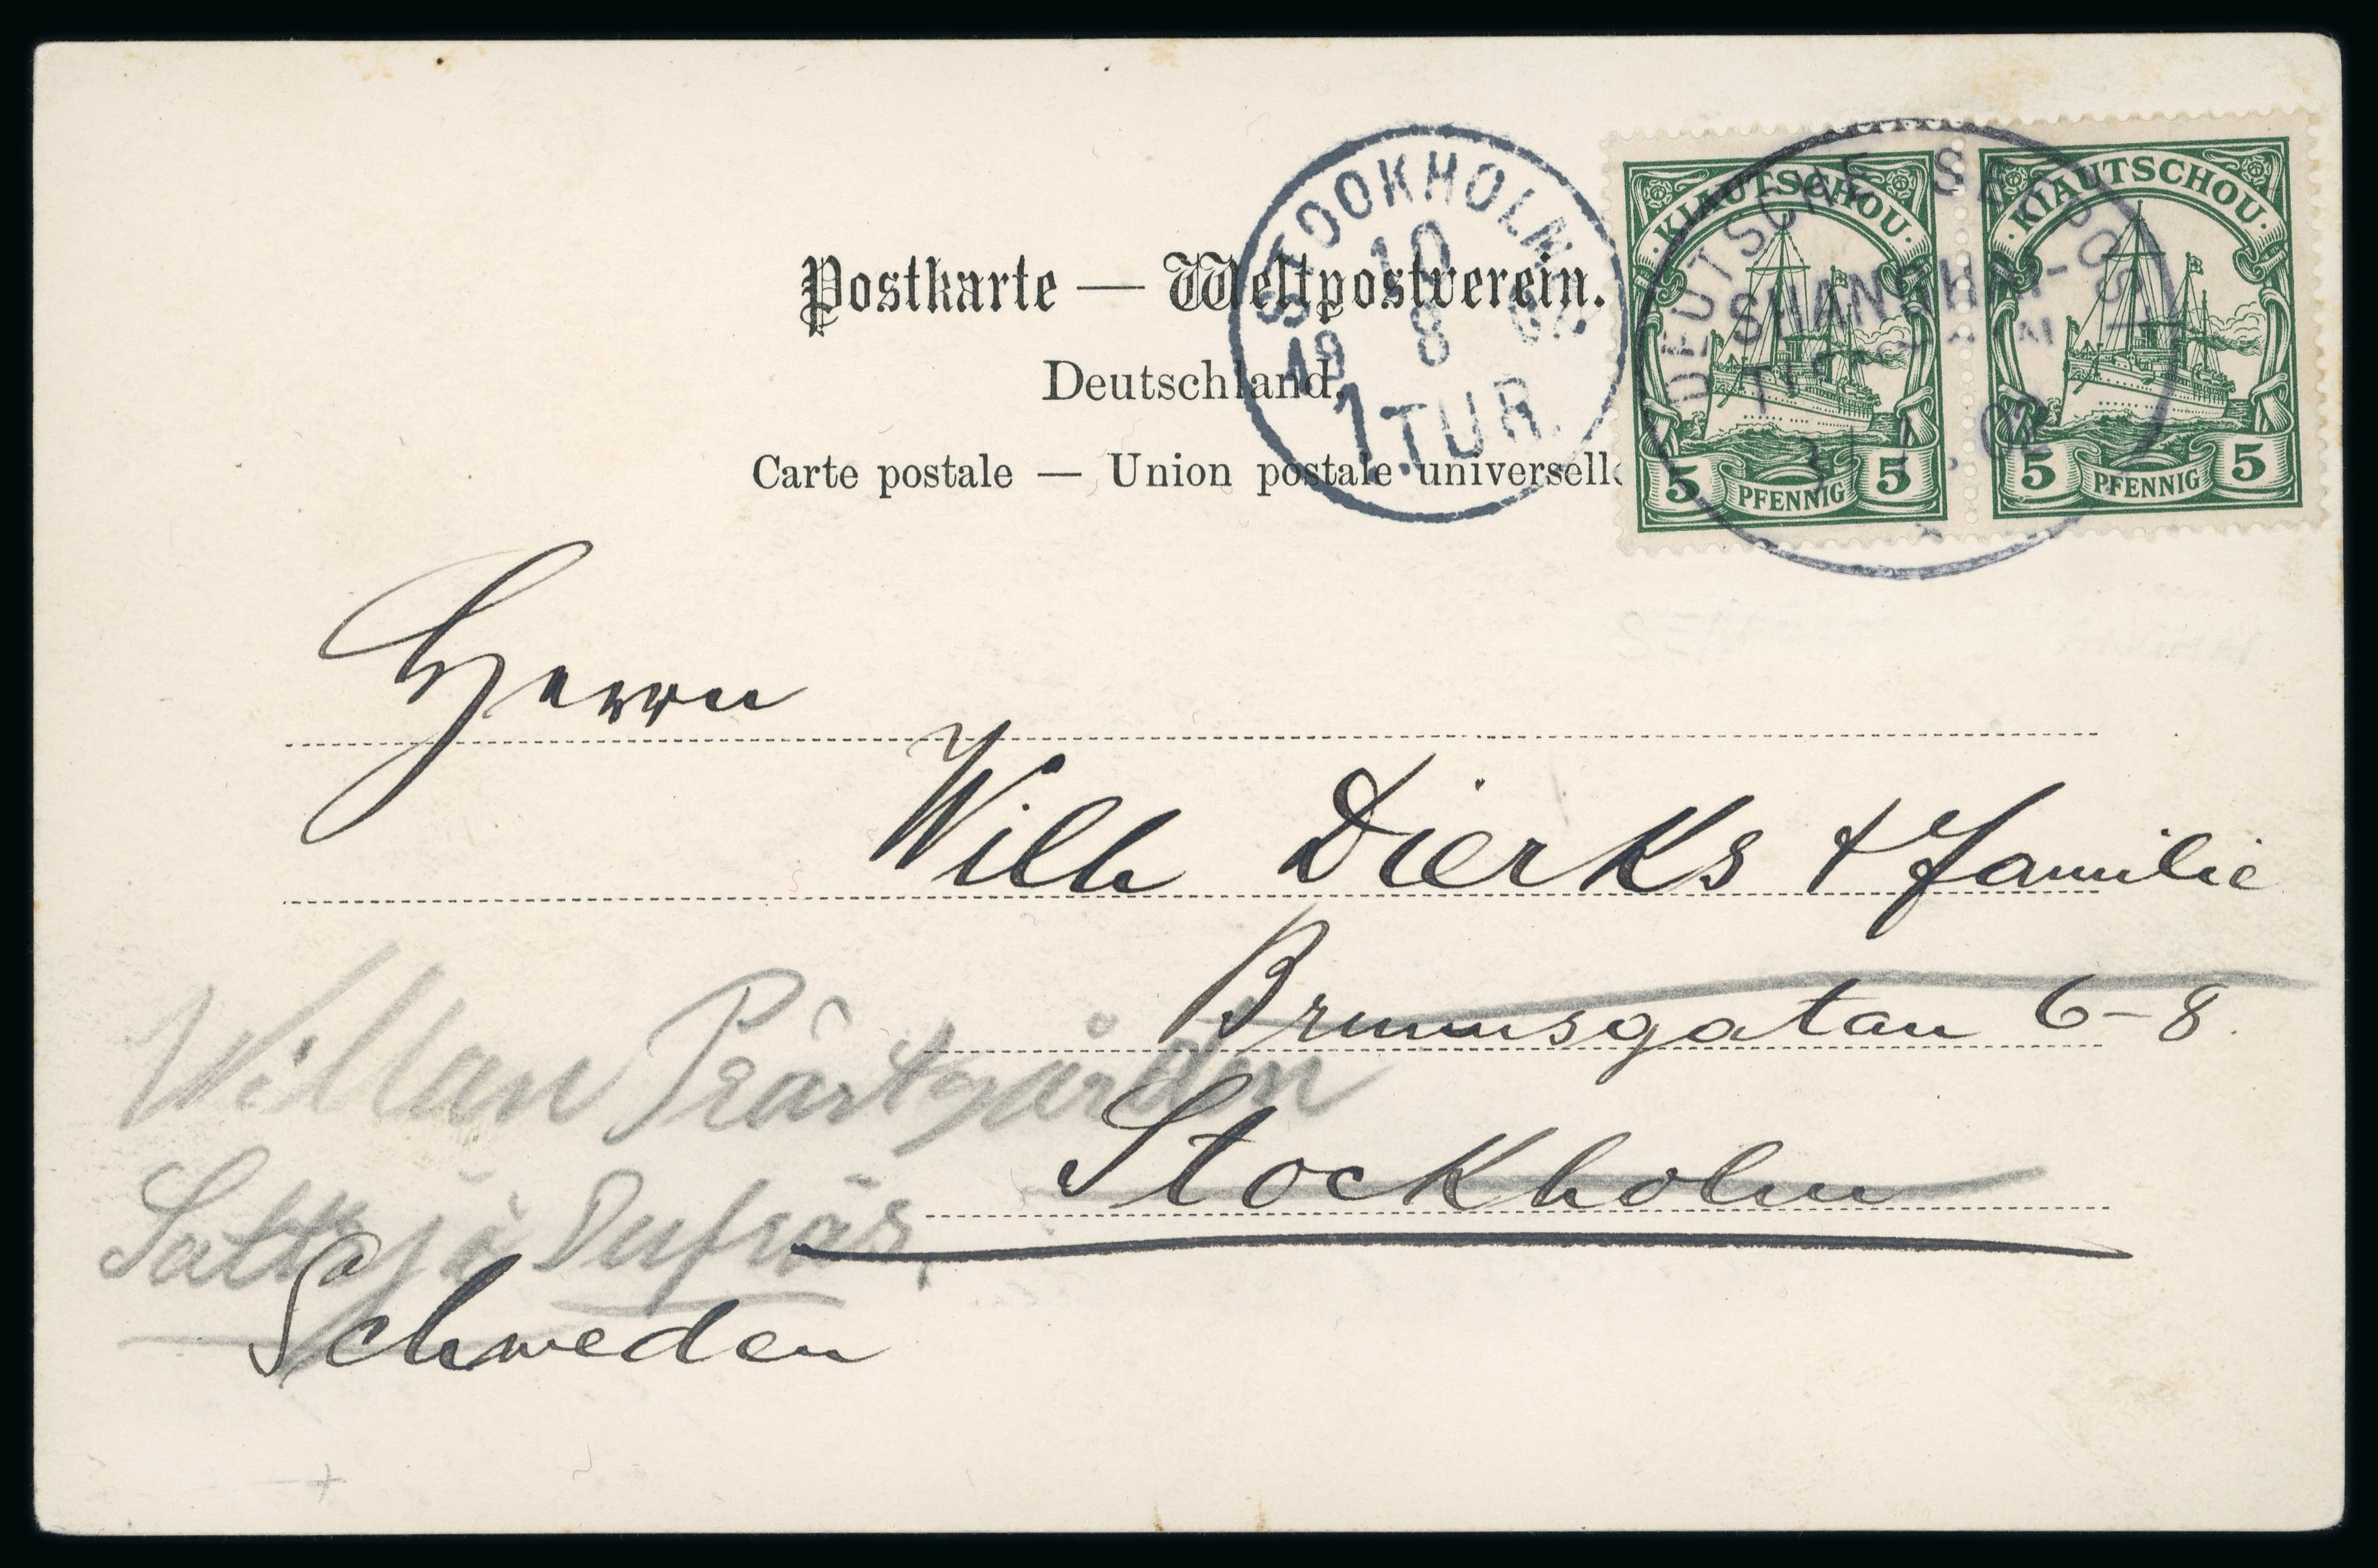 Postkarte — Weltpostverein.
Deutschland.
Carte postale — Union postale universelle
STOCKHOLM
10
19 8 02
1.TUR.
KIAUTSCHOU
5 PFENNIG 5
KIAUTSCHOU
5 PFENNIG 5
DEUTSCHE SEEPOST
SHANGHAI-
02
Herrn
Wilh Dierks & Familie
Brunnsgatan 6-8.
Stockholm
Willan Prästgården
Saltsjö Dufnäs.
Schweden